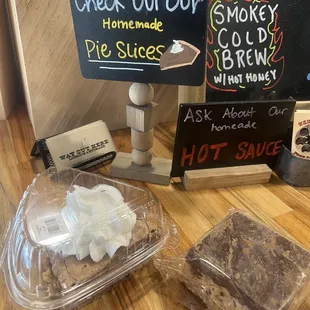 Check Out Our
Homemade
Pie Slices
SMOKEY
COLD
BREW
W/ HOT HONEY
ASK About Our
homeade
HOT SAUCE
WAY OUT HERE